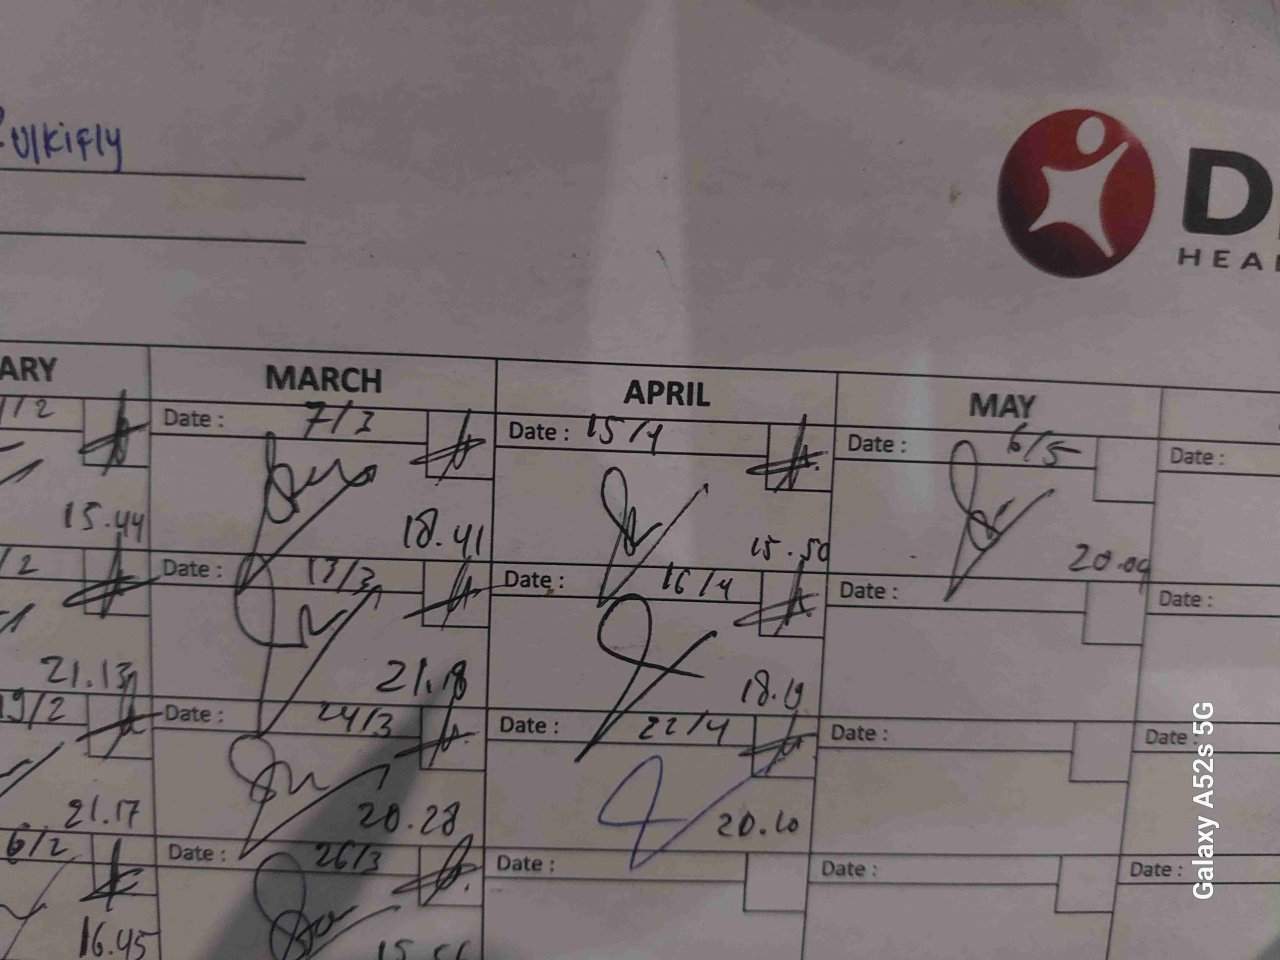 ulkifly
D
HEA
ARY MARCH APRIL MAY
1/2 Date : 7/3 Date : 15/4 Date : 6/5 Date :
15.44 18.41 15.50 20.09
/2 Date : 17/3 Date : 16/4 Date : Date :
21.13 21.18 18.19
19/2 Date : 24/3 Date : 22/4 Date : Date :
21.17 20.28 20.10
6/2 Date : 26/3 Date : Date : Date :
16.45
Galaxy A52s 5G